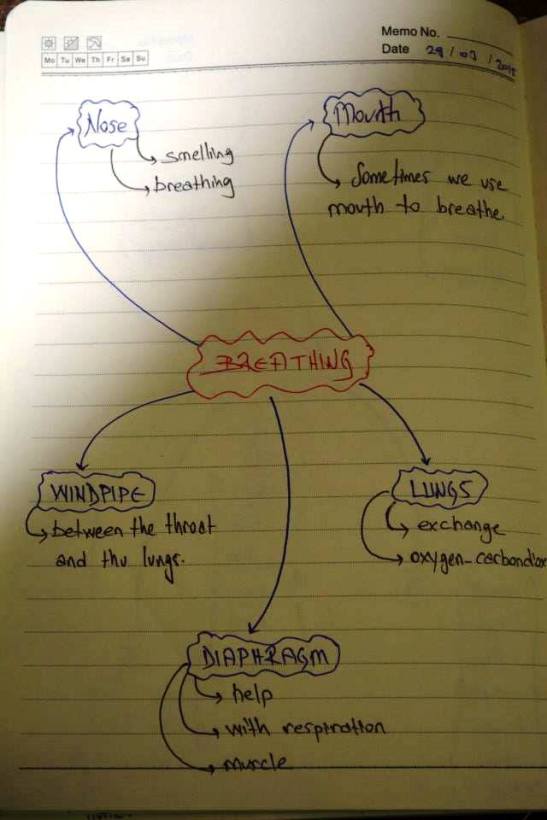 Memo No.
Mo Tu We Th Fr Sa Su
Date 29 / 03 /
Nose
smelling
breathing
Mouth
Sometimes we use
mouth to breathe.
BREATHING
WINDPIPE
between the throat
and thu lungs.
LUNGS
exchange
oxygen-carbondiox
DIAPHRAGM
help
with respiration
muscle